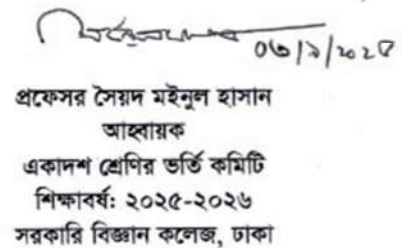 ০৩/৯/২০২৫
প্রফেসর সৈয়দ মইনুল হাসান
আহ্বায়ক
একাদশ শ্রেণির ভর্তি কমিটি
শিক্ষাবর্ষ: ২০২৫-২০২৬
সরকারি বিজ্ঞান কলেজ, ঢাকা